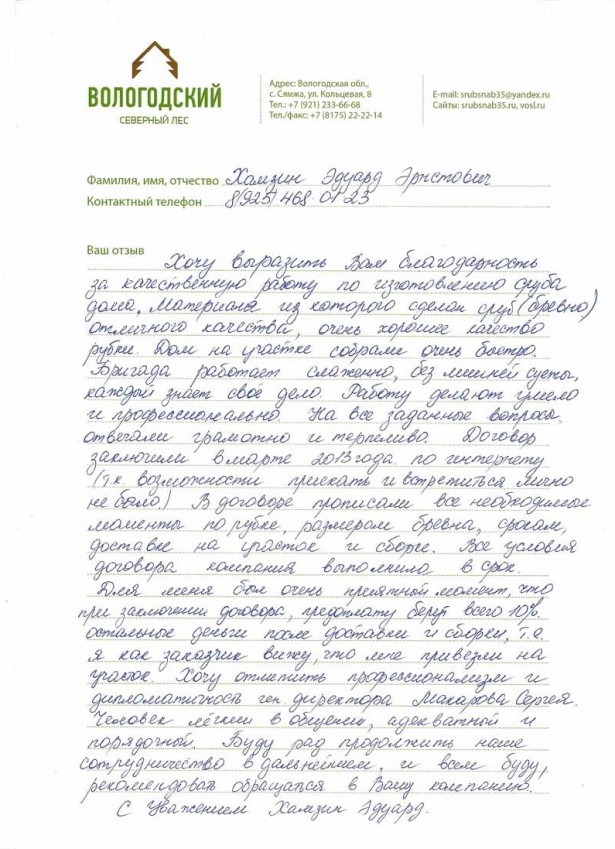 ВОЛОГОДСКИЙ
СЕВЕРНЫЙ ЛЕС
Адрес: Вологодская обл.,
с. Сямжа, ул. Кольцевая, 8
Тел.: +7 (921) 233-66-68
Тел./факс: +7 (8175) 22-22-14
E-mail: srubsnab35@yandex.ru
Сайты: srubsnab35.ru, vosl.ru
Фамилия, имя, отчество Хамзин Эдуард Эрнстович
Контактный телефон 8(925) 468 01 23
Ваш отзыв
Хочу выразить Вам благодарность
за качественную работу по изготовлению сруба
дома, Материал из которого сделан сруб (бревно)
отличного качества, очень хорошее качество
рубки. Дом на участке собрали очень быстро.
Бригада работает слаженно, без лишней суеты,
каждый знает своё дело. Работу делают умело
и профессионально. На все заданные вопросы,
отвечали грамотно и терпеливо. Договор
заключили в марте 2013 года. по интернету
(т.к. возможности приехать и встретиться лично
не было.) В договоре прописали все необходимые
моменты по рубке, размерам бревна, срокам,
доставке на участок и сборке. Все условия
договора компания выполнила в срок.
Для меня был очень приятный момент, что
при заключении договора, предоплату берут всего 10%.
остальные деньги после доставки и сборки, т.е.
я как заказчик вижу, что мне привезли на
участок. Хочу отметить профессионализм и
дипломатичность ген. директора Макарова Сергея.
Человек лёгкий в общении, адекватный и
порядочной. Буду рад продолжить наше
сотрудничество в дальнейшем, и всем буду,
рекомендовать обращаться в Вашу компанию.
С Уважением Хамзин Эдуард.